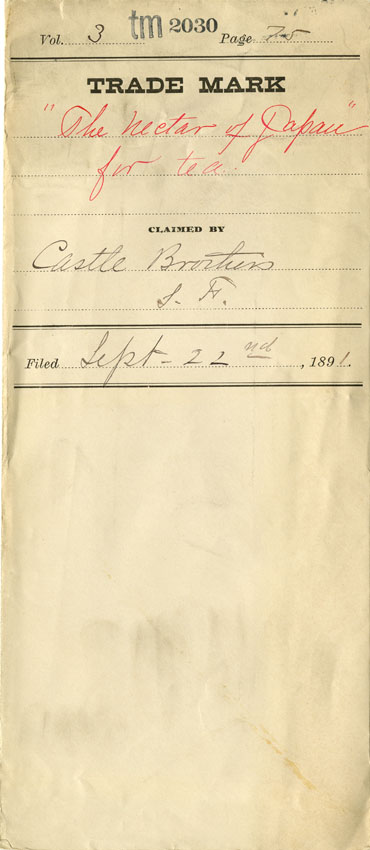 Vol. 3 tm 2030 Page 75
TRADE MARK
"The Nectar of Japan"
for tea.
CLAIMED BY
Castle Brothers
S. F.
Filed Sept - 22nd, 1891.